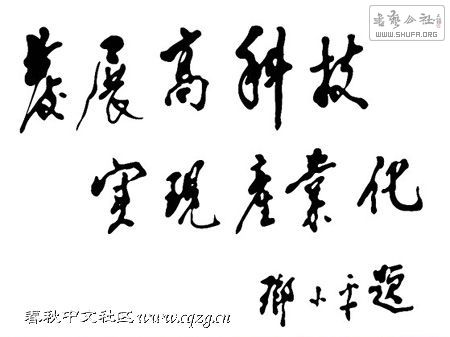 书艺公社
WWW.SHUFA.ORG
發展高科技
实現產業化
鄧小平题
春秋中文社区 www.cqzg.cn